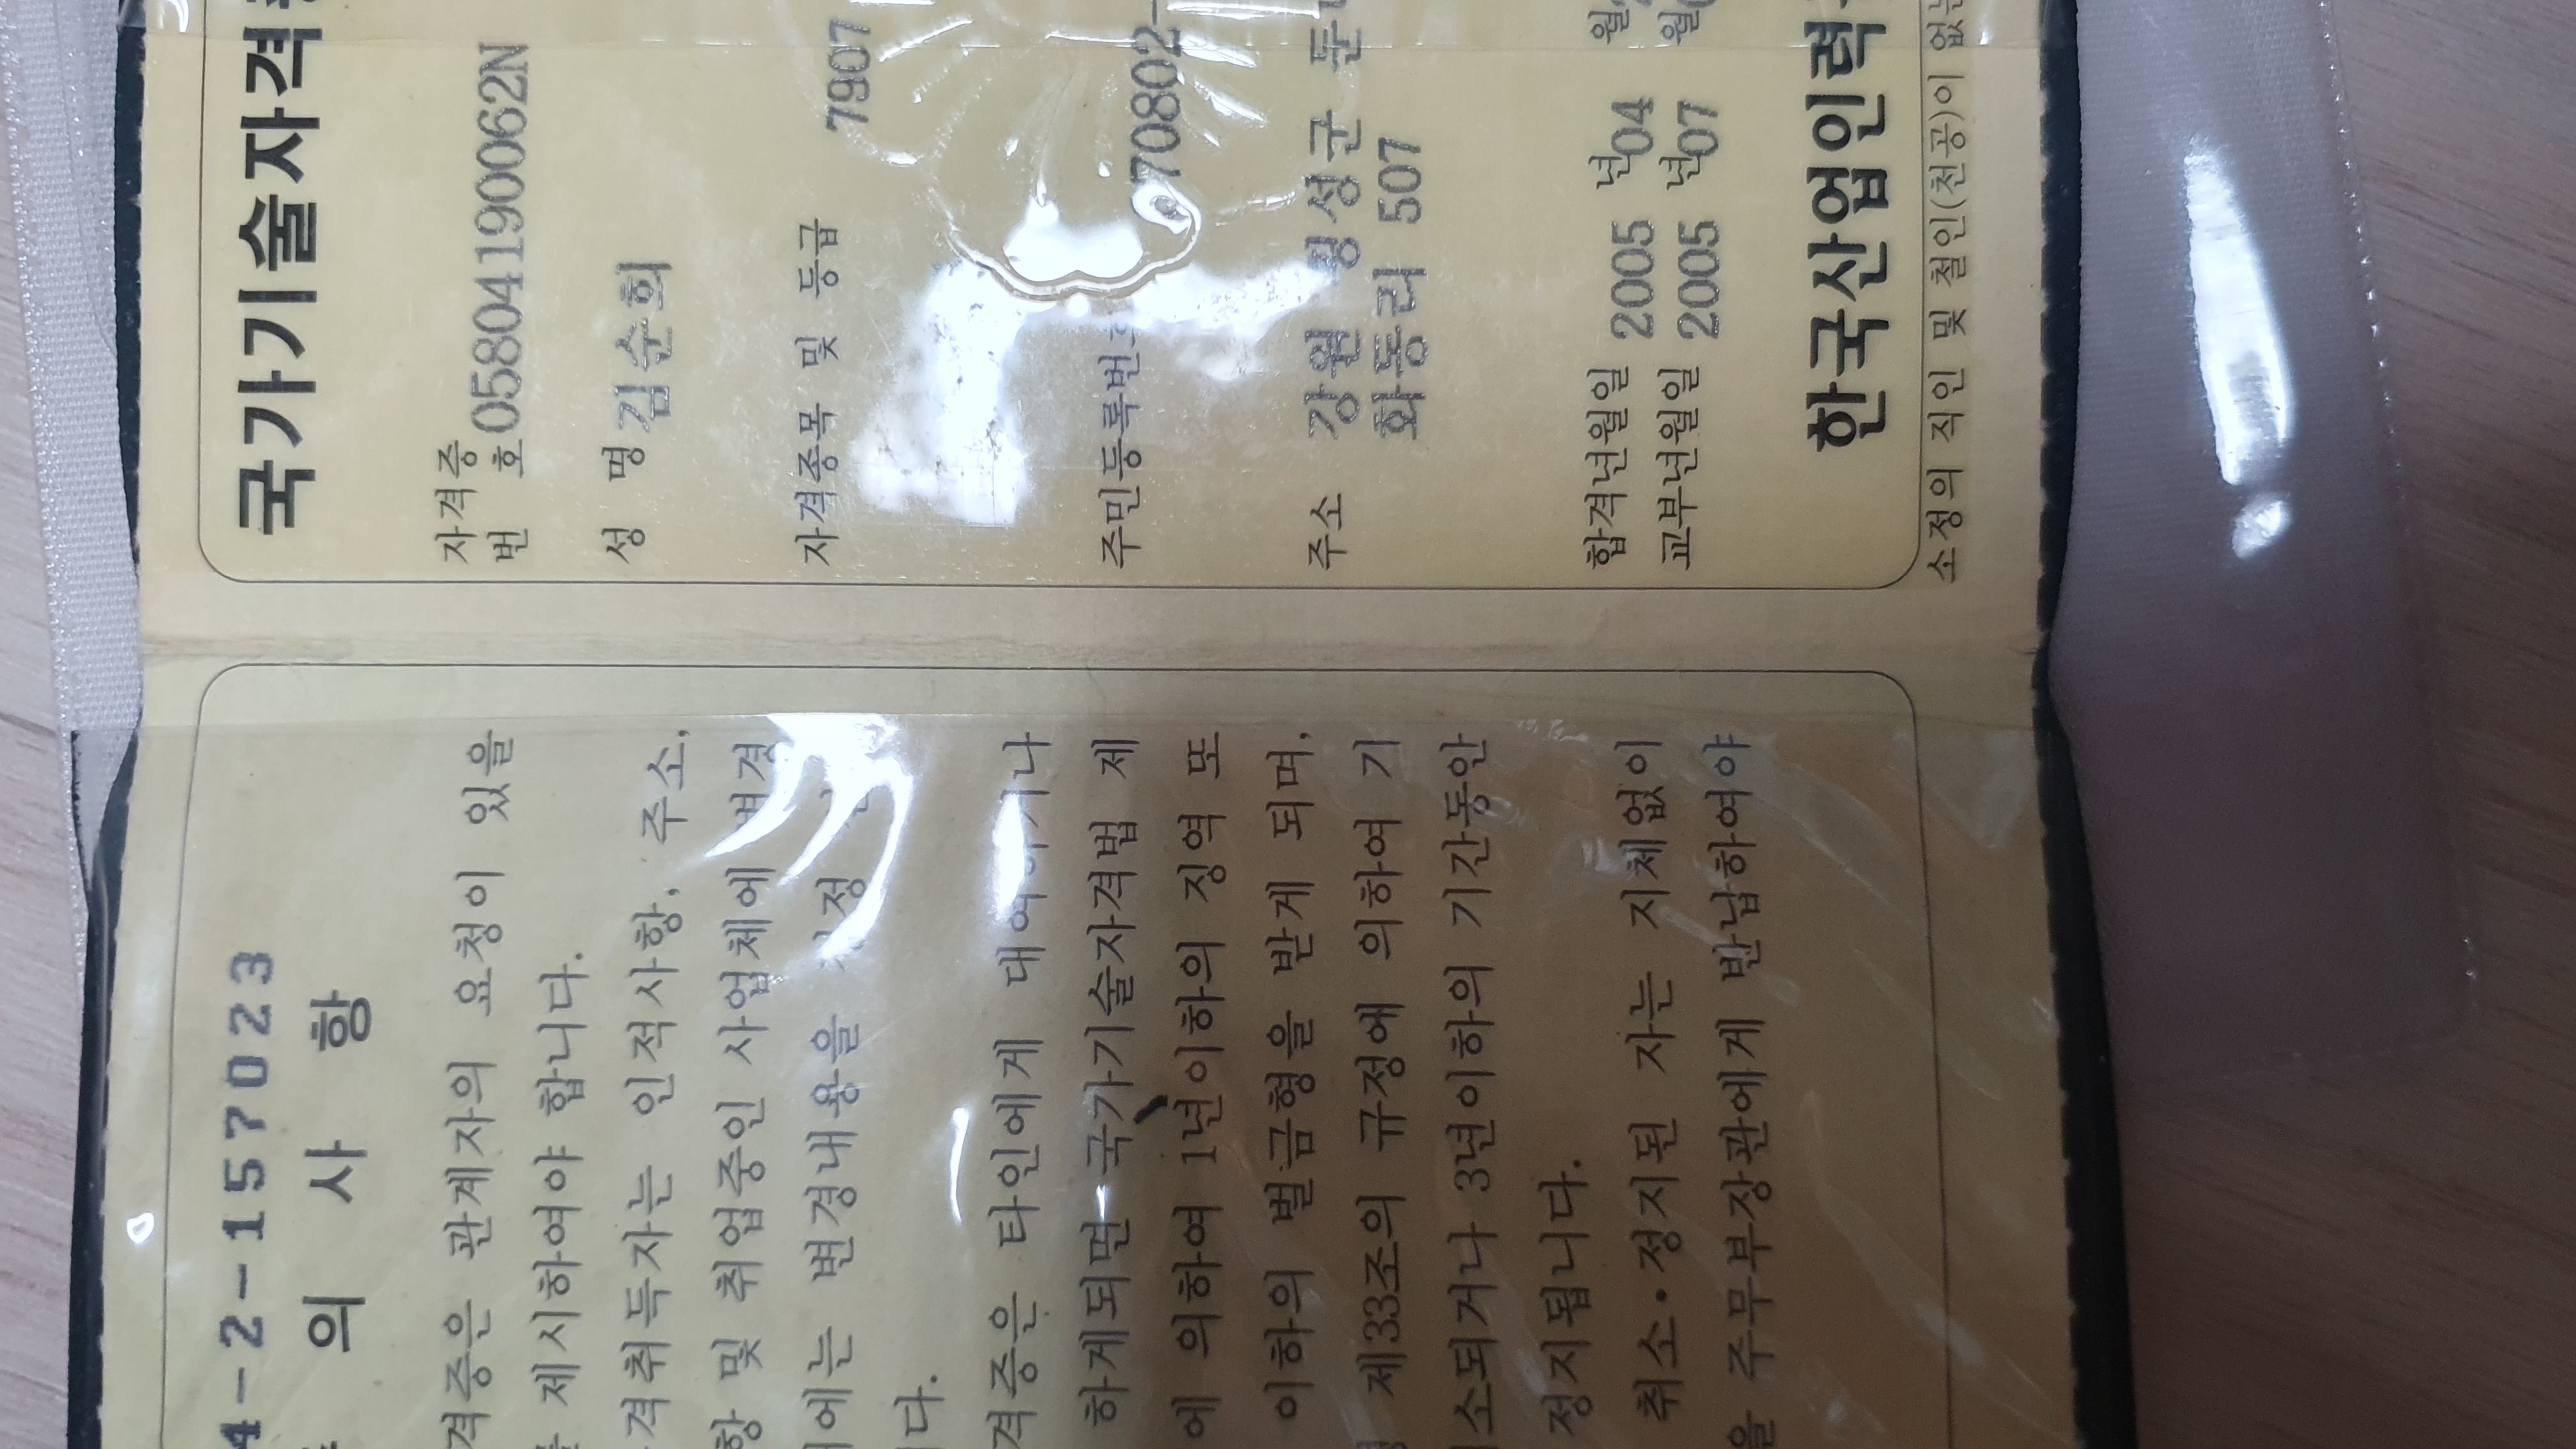 국가기술자격
자격증
번 호 05804190062N
성 명 김순희
자격종목 및 등급 7907
주민등록번호 770802-
주소 강원 횡성군 둔
화동리 507
합격년월일 2005 년04 월
교부년월일 2005 년07 월
한국산업인력
소정의 직인 및 철인(천공)이 없는
4-2-157023
의 사 항
격증은 관계자의 요청이 있을
제시하여야 합니다.
격취득자는 인적사항, 주소,
항 및 취업중인 사업체에 변경
에는 변경내용을 정
다.
격증은 타인에게 대여하거나
하게되면 국가기술자격법 제
에 의하여 1년이하의 징역 또
이하의 벌금형을 받게 되며,
제33조의 규정에 의하여 기
소되거나 3년이하의 기간동안
정지됩니다.
취소·정지된 자는 지체없이
을 주무부장관에게 반납하여야